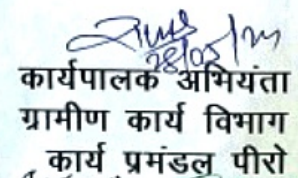 28/05/24
कार्यपालक अभियंता
ग्रामीण कार्य विभाग
कार्य प्रमंडल पीरो